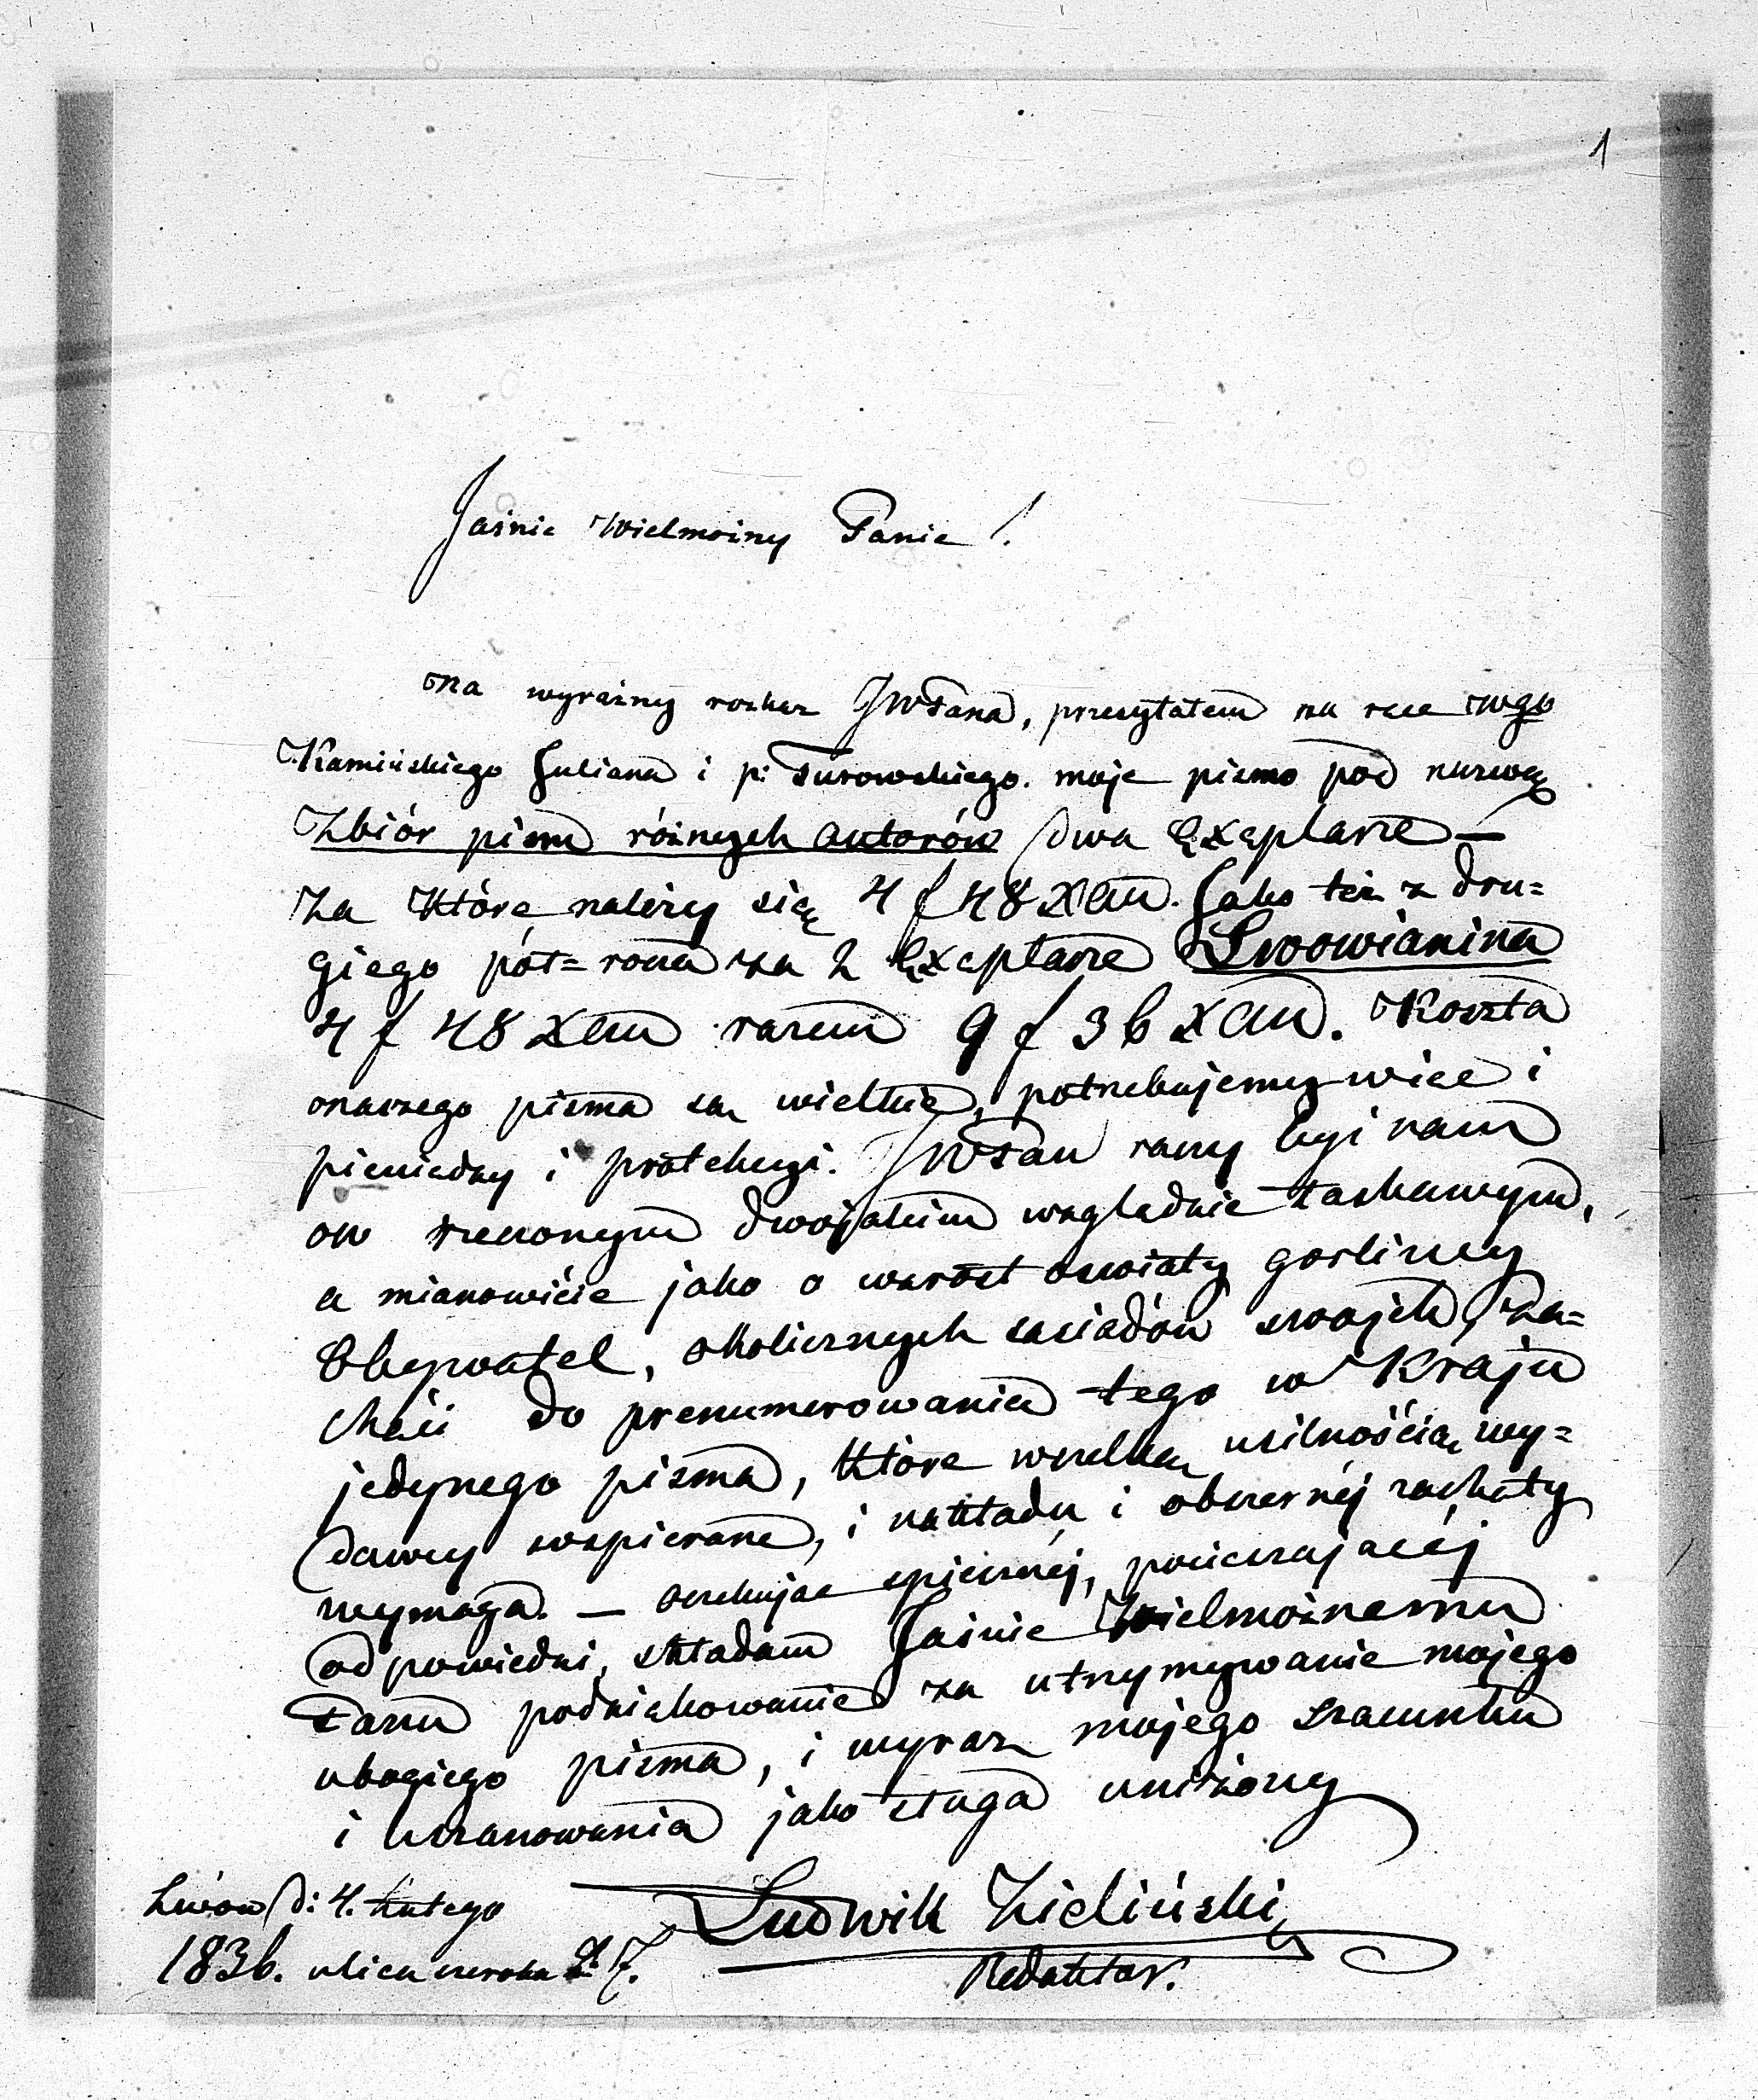 1
Jaśnie Wielmożny Panie!
Na wyraźny rozkaz JWPana, przesyłałem na rece Wgo
Kamińskiego Juliana i p: Turowskiego. moje pismo pod nazwą
Zbiór pism różnych autorów dwa Exęplarze —
Za które należy się 4 f 48 x CM. Jako też z dru=
giego pół=roua za 2 Exęplarze Lwowianina
4 f 48 x CM razem 9 f 36 x CM. Koszta
naszego pisma są wielkie, potrzebujemy wiec i
pieniedzy i protekcyi. JWPan raczy być nam
w rzeczonym dwojakim wzgledzie łaskawym,
a mianowićie jako o wzrost oswiaty gorliwy
Obywatel, okolicznych sasiadów swojch, za=
chęci do prenumerowania tego w Kraju
jedynego pisma, które wszelką usilnośćią wy=
dawcy wspierane, i nakładu i obszernéj zachęty
wymaga. — Oczekujac spiesznéj, pocieszajacéj
odpowiedzi, składam Jaśnie Wielmożnemu
Panu podziękowanie za utrzymywanie mojego
ubogiego pisma, i wyraz mojego szacunku
i uszanowania jako sługa uniżony
Ludwik Zieliński
Redaktor.
Lwów d: 4. Lutego
1836. ulica szeroka 7.